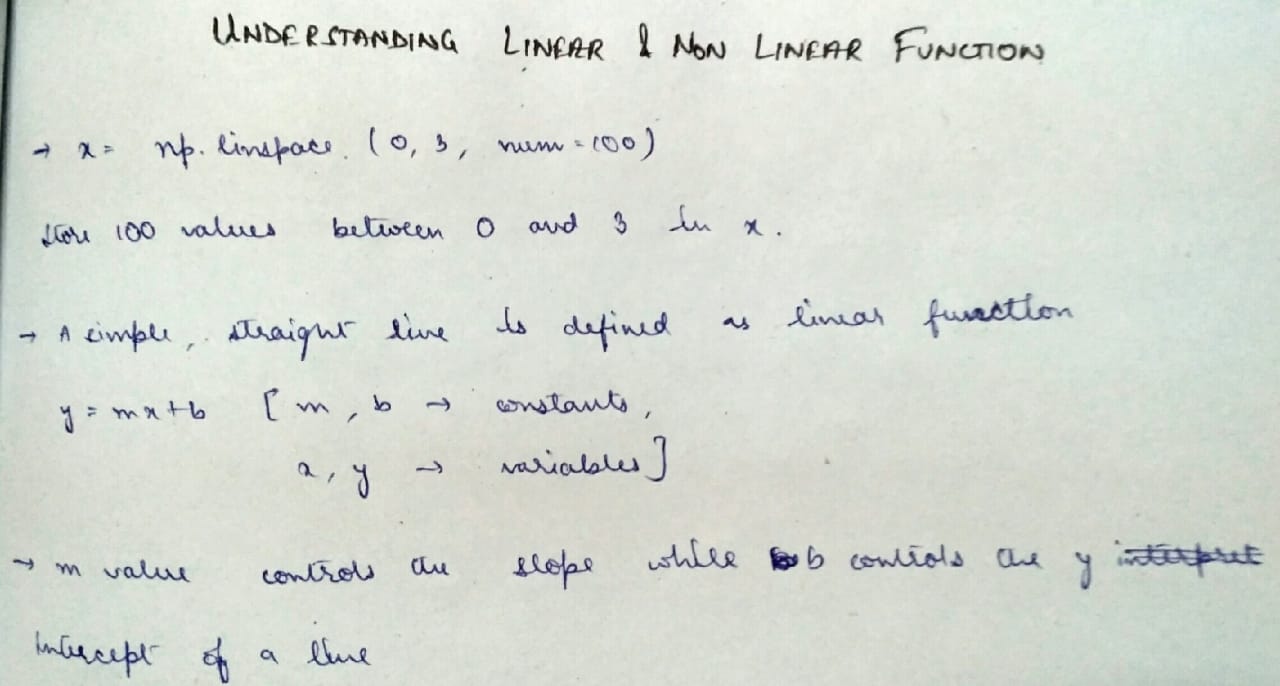 UNDERSTANDING LINEAR & NON LINEAR FUNCTION
→ x = np. linspace. (0, 3, num = 100)
store 100 values between 0 and 3 in x.
→ A simple, straight line is defined as linear function
y = mx + b [ m, b → constants,
x, y → variables ]
→ m value controls the slope while b controls the y interpret
intercept of a line